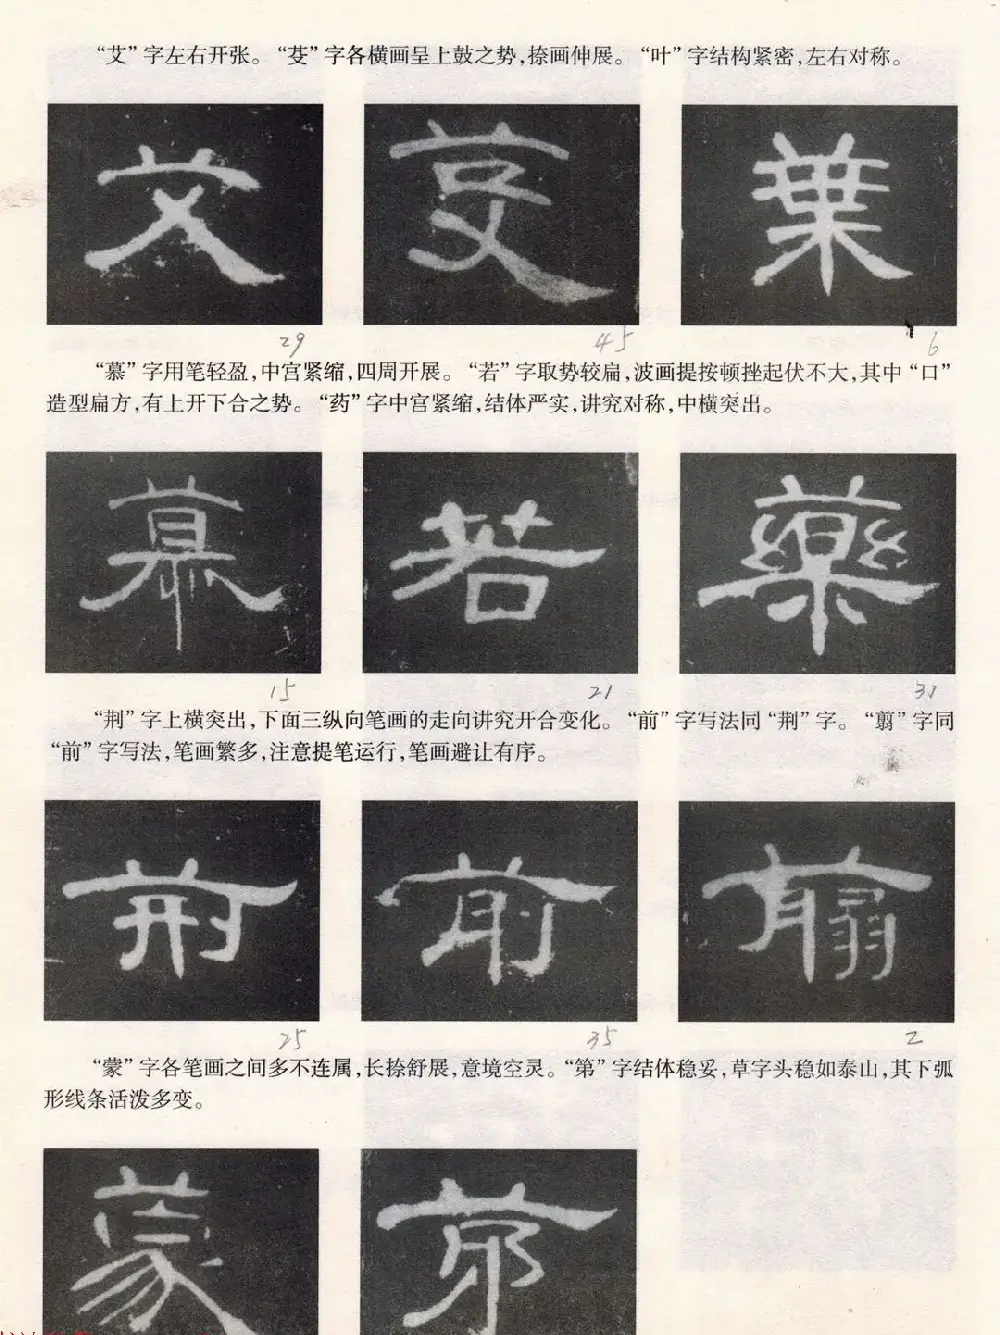 “艾”字左右开张。“芰”字各横画呈上鼓之势，捺画伸展。“叶”字结构紧密，左右对称。
艾
葉
29
45
6
“慕”字用笔轻盈，中宫紧缩，四周开展。“若”字取势较扁，波画提按顿挫起伏不大，其中“口”
造型扁方，有上开下合之势。“药”字中宫紧缩，结体严实，讲究对称，中横突出。
慕 若 藥
15
21
31
“荆”字上横突出，下面三纵向笔画的走向讲究开合变化。“前”字写法同“荆”字。“翦”字同
“前”字写法，笔画繁多，注意提笔运行，笔画避让有序。
荆 前 翦
25
35
2
“蒙”字各笔画之间多不连属，长捺舒展，意境空灵。“第”字结体稳妥，草字头稳如泰山，其下弧
形线条活泼多变。
蒙